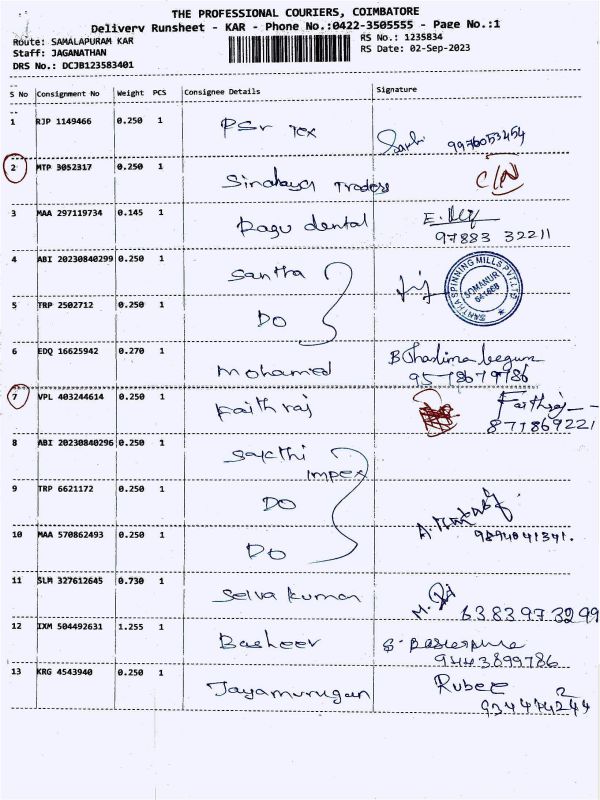 THE PROFESSIONAL COURIERS, COIMBATORE
Delivery Runsheet - KAR - Phone No.:0422-3505555 - Page No.:1
Route: SAMALAPURAM KAR
RS No.: 1235834
Staff: JAGANATHAN
RS Date: 02-Sep-2023
DRS No.: DCJB123583401
S No Consignment No Weight PCS Consignee Details Signature
1 RJP 1149466 0.250 1 PSr Tex 9976053454
2 MTP 3052317 0.250 1 Traders C/N
3 MAA 297119734 0.145 1 Ragu dental 97883 32211
4 ABI 20230840299 0.250 1 Santha
SANTHA SPINNING MILLS PVT.LTD
SOMANUR
641668
5 TRP 2502712 0.250 1 DO
6 EDQ 16625942 0.270 1 Mohamed B Thaslima begum
9578679786
7 VPL 403244614 0.250 1 Faith raj Faithraj
877869221
8 ABI 20230840296 0.250 1 Sakthi
impex
9 TRP 6621172 0.250 1 DO
10 MAA 570862493 0.250 1 DO 9894041341.
11 SLM 327612645 0.730 1 Selva kumar 6383973299
12 IXM 504492631 1.255 1 Basheer
9443899786
13 KRG 4543940 0.250 1 Jayamurugan